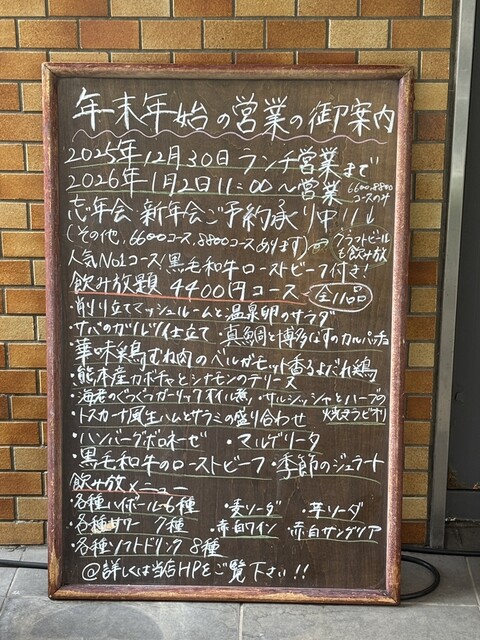 年末年始の営業の御案内
2025年12月30日ランチ営業まで
2026年1月2日11:00〜営業
6600,8800コースのみ
忘年会 新年会ご予約承り中!!
(その他、6600コース、8800コースあります)⇨クラフトビールも飲み放
人気No1コース/黒毛和牛ローストビーフ付き!
飲み放題 4400円コース 全11品
・削り立てマッシュルームと温泉卵のサラダ
・サバのガルシア仕立て ・真鯛と博多なすのカルパッチョ
・華味鶏むね肉のベルガモット香るよだれ鶏
・熊本産カボチャとシナモンのテリーヌ
・海老のぐつぐつガーリックオイル煮 ・サルシッシャとハーブの焼きラビオリ
・トスカーナ風生ハムとサラミの盛り合わせ
・ハンバーグボロネーゼ ・マルゲリータ
・黒毛和牛のローストビーフ ・季節のジェラート
飲み放メニュー
・各種ハイボール6種 ・麦ソーダ ・芋ソーダ
・各種サワー 7種 ・赤白ワイン ・赤白サングリア
・各種ソフトドリンク 8種
@詳しくは当店HPをご覧下さい!!